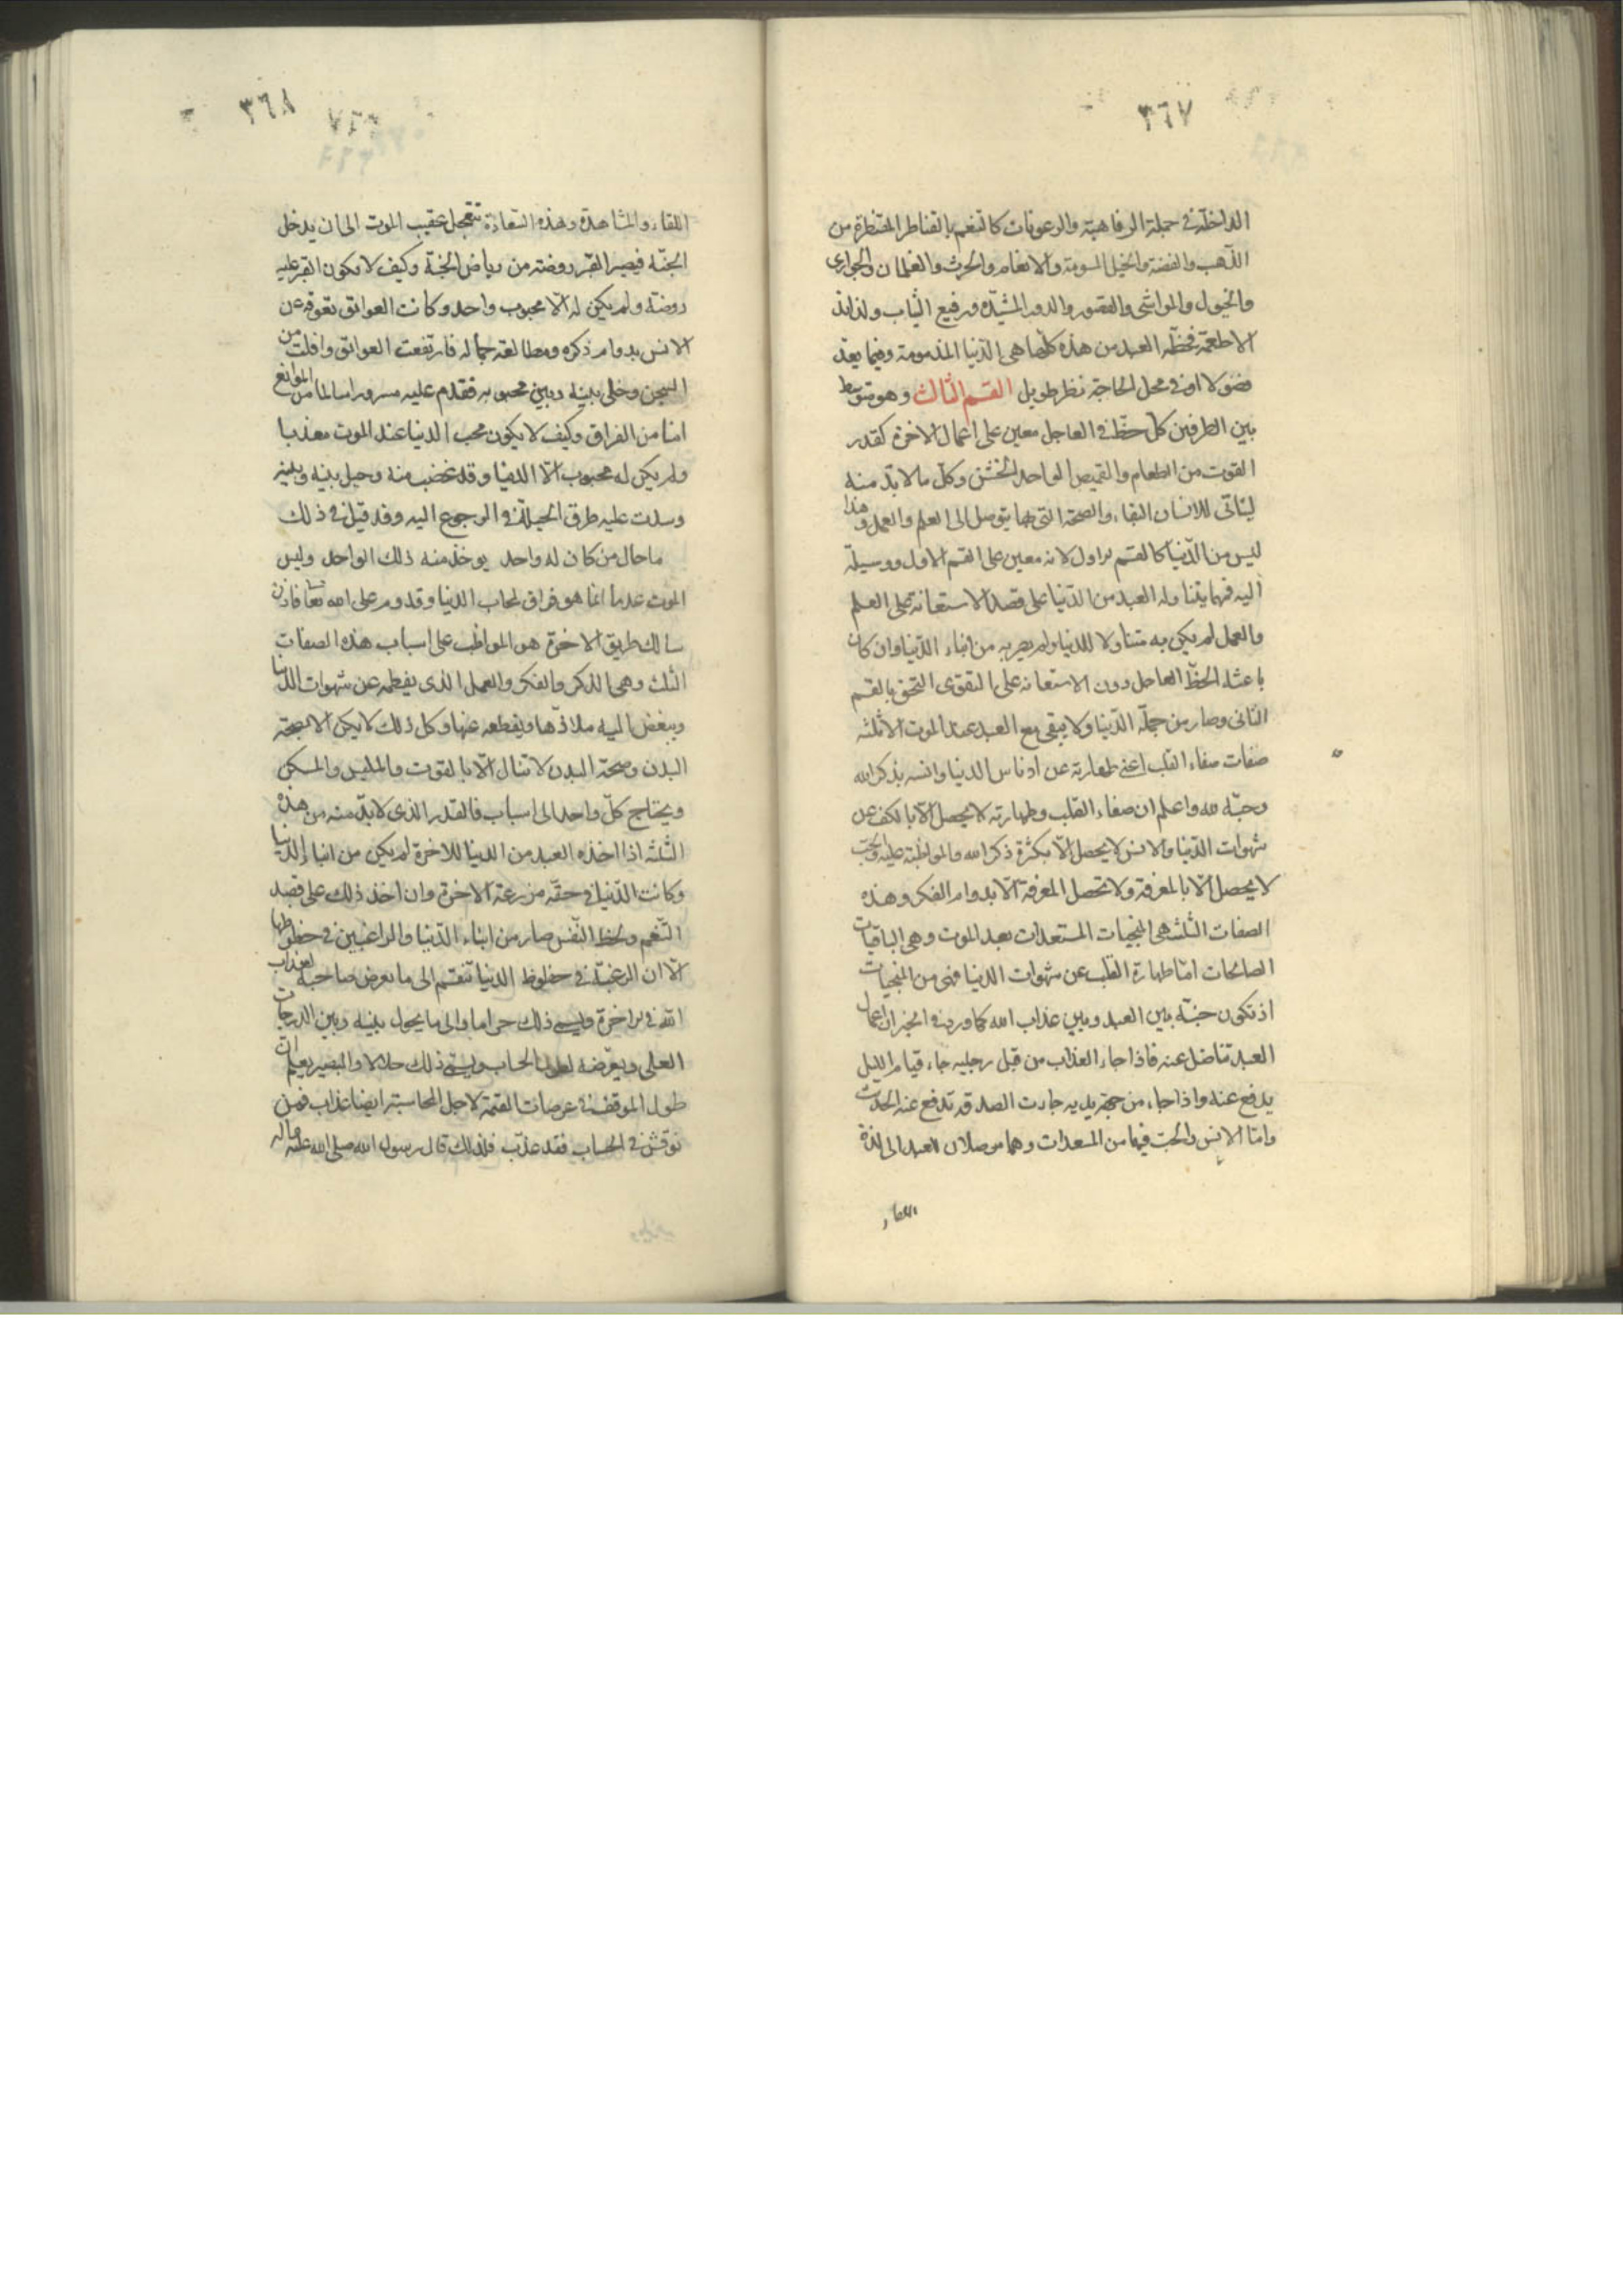 ٣٦٧
الداخلة في جملة الرفاهية والرعونات كالتنعم بالقناطر المقنطرة من
الذهب والفضة والخيل المسومة والانعام والحرث والغلمان والجواري
والخيول والمواشي والقصور والدور المشيّدة ورفيع الثياب ولذائذ
الاطعمة فحظّ العبد من هذه كلّها هي الدّنيا المذمومة وفيما يعدّ
فضولا او في محل الحاجة نظر طويل القسم الثالث وهو متوسط
بين الطرفين كل حظّ في العاجل معين على اعمال الاخرة كقدر
القوت من الطعام والقميص الواحد الخشن وكلّ ما لا بدّ منه
ليتأتى للانسان البقاء والصحة التي بها يتوصل الى العلم والعمل وهذا
ليس من الدّنيا كالقسم الاول لانه معين على القسم الاول ووسيلة
اليه فمهما يتناوله العبد من الدّنيا على قصد الاستعانة على العلم
والعمل لم يكن به متناولا للدنيا ولم يصر به من ابناء الدّنيا وان كان
باعثه الحظّ العاجل دون الاستعانة على التقوى التحق بالقسم
الثاني وصار من جملة الدّنيا ولا يبقى مع العبد عند الموت الا ثلثة
صفات صفاء القلب اعني طهارته عن ادناس الدنيا وانسه بذكر الله
وحبّه لله واعلم ان صفاء القلب وطهارته لا يحصل الّا بالكف عن
شهوات الدّنيا والانس لا يحصل الّا بكثرة ذكر الله والمواظبة عليه والحبّ
لا يحصل الّا بالمعرفة ولا تحصل المعرفة الّا بدوام الفكر وهذه
الصفات الثلثة هي المنجيات المسعدات بعد الموت وهي الباقيات
الصالحات امّا طهارة القلب عن شهوات الدنيا فهي من المنجيات
اذ تكون جنّة بين العبد وبين عذاب الله كما ورد في الخبر ان اعمال
العبد تناضل عنه فاذا جاء العذاب من قبل رجليه جاء قيام الليل
يدفع عنه واذا جاء من جهة يديه جاءت الصدقة تدفع عنه الحديث
وامّا الانس والحبّ فهما من المسعدات وهما موصلان العبد الى لذة
اللقاء
٣٦٨
اللقاء والمشاهدة وهذه السّعادة تتعجل عقيب الموت الى ان يدخل
الجنّة فيصير القبر روضة من رياض الجنة وكيف لا يكون القبر عليه
روضة ولم يكن له الّا محبوب واحد وكانت العوائق تعوقه عن
الانس بدوام ذكره ومطالعة جماله فارتفعت العوائق وافلت من
السجن وخلي بينه وبين محبوبه فقدم عليه مسرورا سالما من الموانع
امنا من الفراق وكيف لا يكون محب الدنيا عند الموت معذبا
ولم يكن له محبوب الّا الدنيا وقد غصب منه وحيل بينه وبينه
وسدت عليه طرق الحيلة في الرجوع اليه وقد قيل في ذلك
ما حال من كان له واحد يوخذ منه ذلك الواحد وليس
الموت عدما انما هو فراق لمحاب الدنيا وقدوم على الله تعا فاذن
سالك طريق الاخرة هو المواظب على اسباب هذه الصفات
الثلث وهي الذكر والفكر والعمل الذي يفطمه عن شهوات الدنيا
ويبغض اليه ملاذّها ويقطعه عنها وكل ذلك لا يمكن الا بصحة
البدن وصحة البدن لا تنال الّا بالقوت والملبس والمسكن
ويحتاج كلّ واحد الى اسباب فالقدر الذي لا بدّ منه من هذه
الثلثة اذا اخذه العبد من الدنيا للاخرة لم يكن من ابناء الدنيا
وكانت الدّنيا في حقّه مزرعة الاخرة وان اخذ ذلك على قصد
التّنعم ولحظ النّفس صار من ابناء الدّنيا والراغبين في حظوظها
الّا ان الرغبة في حظوظ الدنيا تنقسم الى ما يعرض صاحبه لعذاب
الله في الاخرة ويسمى ذلك حراما والى ما يحول بينه وبين الدرجات
العلى ويعرّضه لطول الحساب ويسمى ذلك حلالا والبصير يعلم ان
طول الموقف في عرصات القيمة لاجل المحاسبة ايضا عذاب فمن
نوقش في الحساب فقد عذّب فلذلك قال رسول الله صلى الله عليه واله